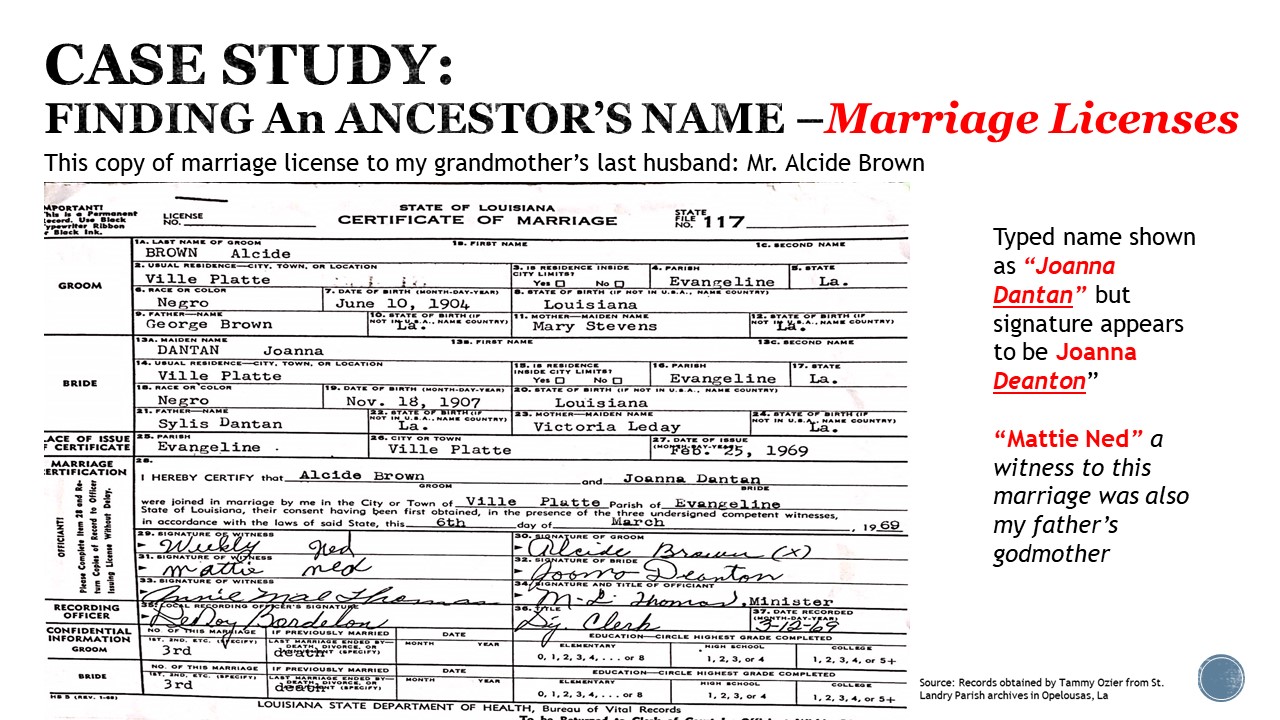 CASE STUDY:
FINDING An ANCESTOR’S NAME –Marriage Licenses
This copy of marriage license to my grandmother’s last husband: Mr. Alcide Brown
MPORTANT!
This is a Permanent
ecord. Use Black
ypewriter Ribbon
r Black Ink.
LICENSE
NO.
STATE OF LOUISIANA
CERTIFICATE OF MARRIAGE
STATE
FILE
NO. 117
GROOM
1A. LAST NAME OF GROOM 1B. FIRST NAME 1C. SECOND NAME
BROWN Alcide
2. USUAL RESIDENCE—CITY, TOWN, OR LOCATION 3. IS RESIDENCE INSIDE CITY LIMITS? 4. PARISH 5. STATE
Ville Platte Yes No Evangeline La.
6. RACE OR COLOR 7. DATE OF BIRTH (MONTH-DAY-YEAR) 8. STATE OF BIRTH (IF NOT IN U.S.A., NAME COUNTRY)
Negro June 10, 1904 Louisiana
9. FATHER—NAME 10. STATE OF BIRTH (IF NOT IN U.S.A., NAME COUNTRY) 11. MOTHER—MAIDEN NAME 12. STATE OF BIRTH (IF NOT IN U.S.A., NAME COUNTRY)
George Brown La. Mary Stevens La.
BRIDE
13A. MAIDEN NAME 13B. FIRST NAME 13C. SECOND NAME
DANTAN Joanna
14. USUAL RESIDENCE—CITY, TOWN, OR LOCATION 15. IS RESIDENCE INSIDE CITY LIMITS? 16. PARISH 17. STATE
Ville Platte Yes No Evangeline La.
18. RACE OR COLOR 19. DATE OF BIRTH (MONTH-DAY-YEAR) 20. STATE OF BIRTH (IF NOT IN U.S.A., NAME COUNTRY)
Negro Nov. 18, 1907 Louisiana
21. FATHER—NAME 22. STATE OF BIRTH (IF NOT IN U.S.A., NAME COUNTRY) 23. MOTHER—MAIDEN NAME 24. STATE OF BIRTH (IF NOT IN U.S.A., NAME COUNTRY)
Sylis Dantan La. Victoria Leday La.
LACE OF ISSUE
F CERTIFICATE
25. PARISH 26. CITY OR TOWN 27. DATE OF ISSUE (MONTH-DAY-YEAR)
Evangeline Ville Platte Feb. 25, 1969
MARRIAGE
CERTIFICATION
OFFICIANT:
Please Complete Item 28 and Re-
turn Copies of Record to Officer
Issuing License Without Delay.
28.
I HEREBY CERTIFY that Alcide Brown and Joanna Dantan
GROOM BRIDE
were joined in marriage by me in the City or Town of Ville Platte Parish of Evangeline
State of Louisiana, their consent having been first obtained, in the presence of the three undersigned competent witnesses,
in accordance with the laws of said State, this 6th day of March, 1969
29. SIGNATURE OF WITNESS 30. SIGNATURE OF GROOM
Weekly Ned Alcide Brown (X)
31. SIGNATURE OF WITNESS 32. SIGNATURE OF BRIDE
mattie ned Joanna Deanton
33. SIGNATURE OF WITNESS 34. SIGNATURE AND TITLE OF OFFICIANT
Annie Mae Thomas M-L Thomas, Minister
RECORDING
OFFICER
35. LOCAL RECORDING OFFICER'S SIGNATURE 36. TITLE 37. DATE RECORDED (MONTH-DAY-YEAR)
LeRoy Bordelon Dy. Clerk 3-12-69
CONFIDENTIAL
INFORMATION
GROOM
NO. OF THIS MARRIAGE IF PREVIOUSLY MARRIED DATE EDUCATION—CIRCLE HIGHEST GRADE COMPLETED
1ST, 2ND, ETC. (SPECIFY) LAST MARRIAGE ENDED BY—DEATH, DIVORCE, OR ANNULMENT (SPECIFY) MONTH YEAR ELEMENTARY HIGH SCHOOL COLLEGE
3rd death 0, 1, 2, 3, 4, . . . . or 8 1, 2, 3, or 4 1, 2, 3, 4, or 5+
BRIDE
NO. OF THIS MARRIAGE IF PREVIOUSLY MARRIED DATE EDUCATION—CIRCLE HIGHEST GRADE COMPLETED
1ST, 2ND, ETC. (SPECIFY) LAST MARRIAGE ENDED BY—DEATH, DIVORCE, OR ANNULMENT (SPECIFY) MONTH YEAR ELEMENTARY HIGH SCHOOL COLLEGE
3rd death 0, 1, 2, 3, 4, . . . . or 8 1, 2, 3, or 4 1, 2, 3, 4, or 5+
LOUISIANA STATE DEPARTMENT OF HEALTH, Bureau of Vital Records
Typed name shown
as “Joanna
Dantan” but
signature appears
to be Joanna
Deanton”
“Mattie Ned” a
witness to this
marriage was also
my father’s
godmother
Source: Records obtained by Tammy Ozier from St.
Landry Parish archives in Opelousas, La